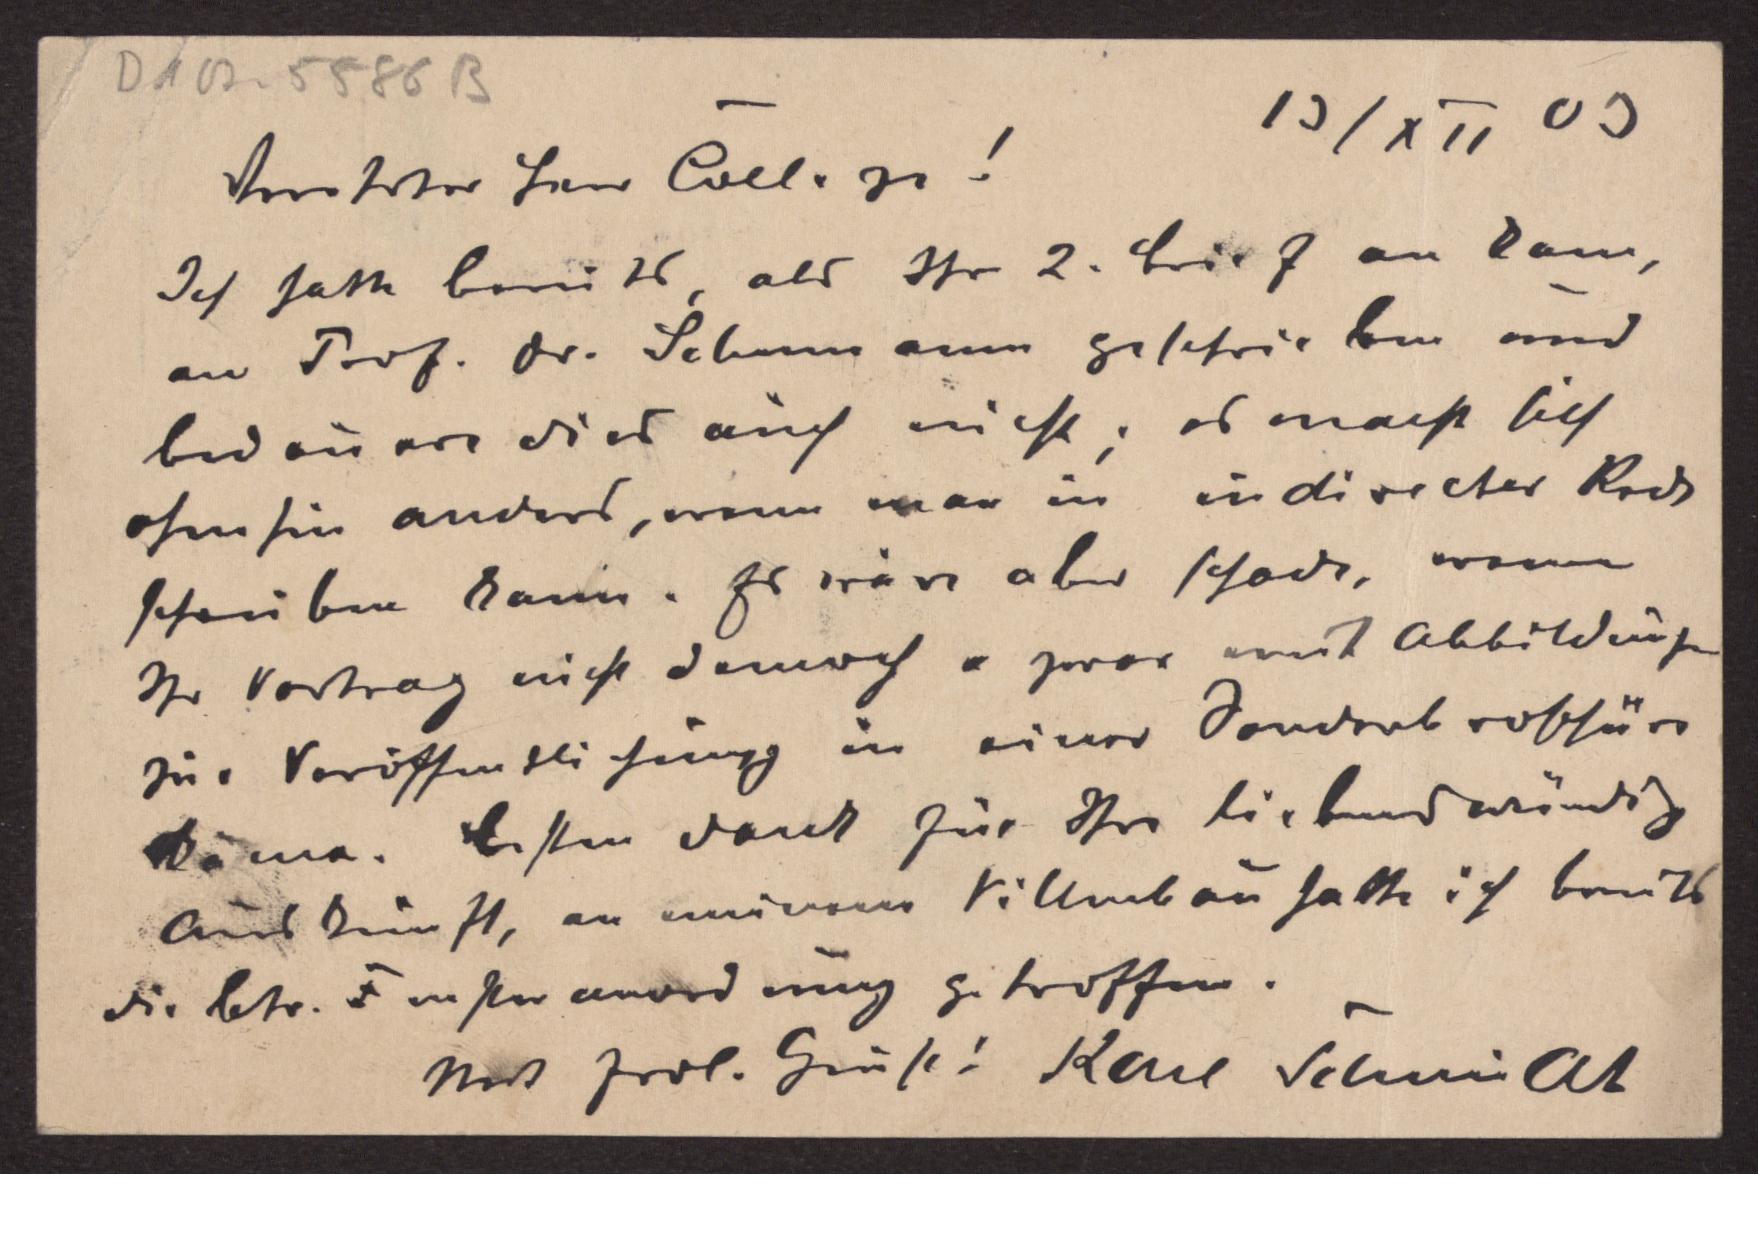 13/XII 03
Verehrter Herr College!
Ich hatte bereits, als Ihr 2. Brief an kam,
an Prof. Dr. Schumann geschrieben und
bedauere dies auch nicht; es macht sich
ohnehin anders, wenn man in indirecter Rede
schreiben kann. Es wäre aber schade, wenn
Ihr Vortrag nicht dennoch u zwar mit Abbildungen
zur Veröffentlichung in einer Sonderbroschüre
käme. Besten Dank für Ihre liebenswürdige
Auskunft, an meinem Villenbau hatte ich bereits
die betr. Fensteranordnung getroffen.
Mit frdl. Gruß! Karl Schmidt